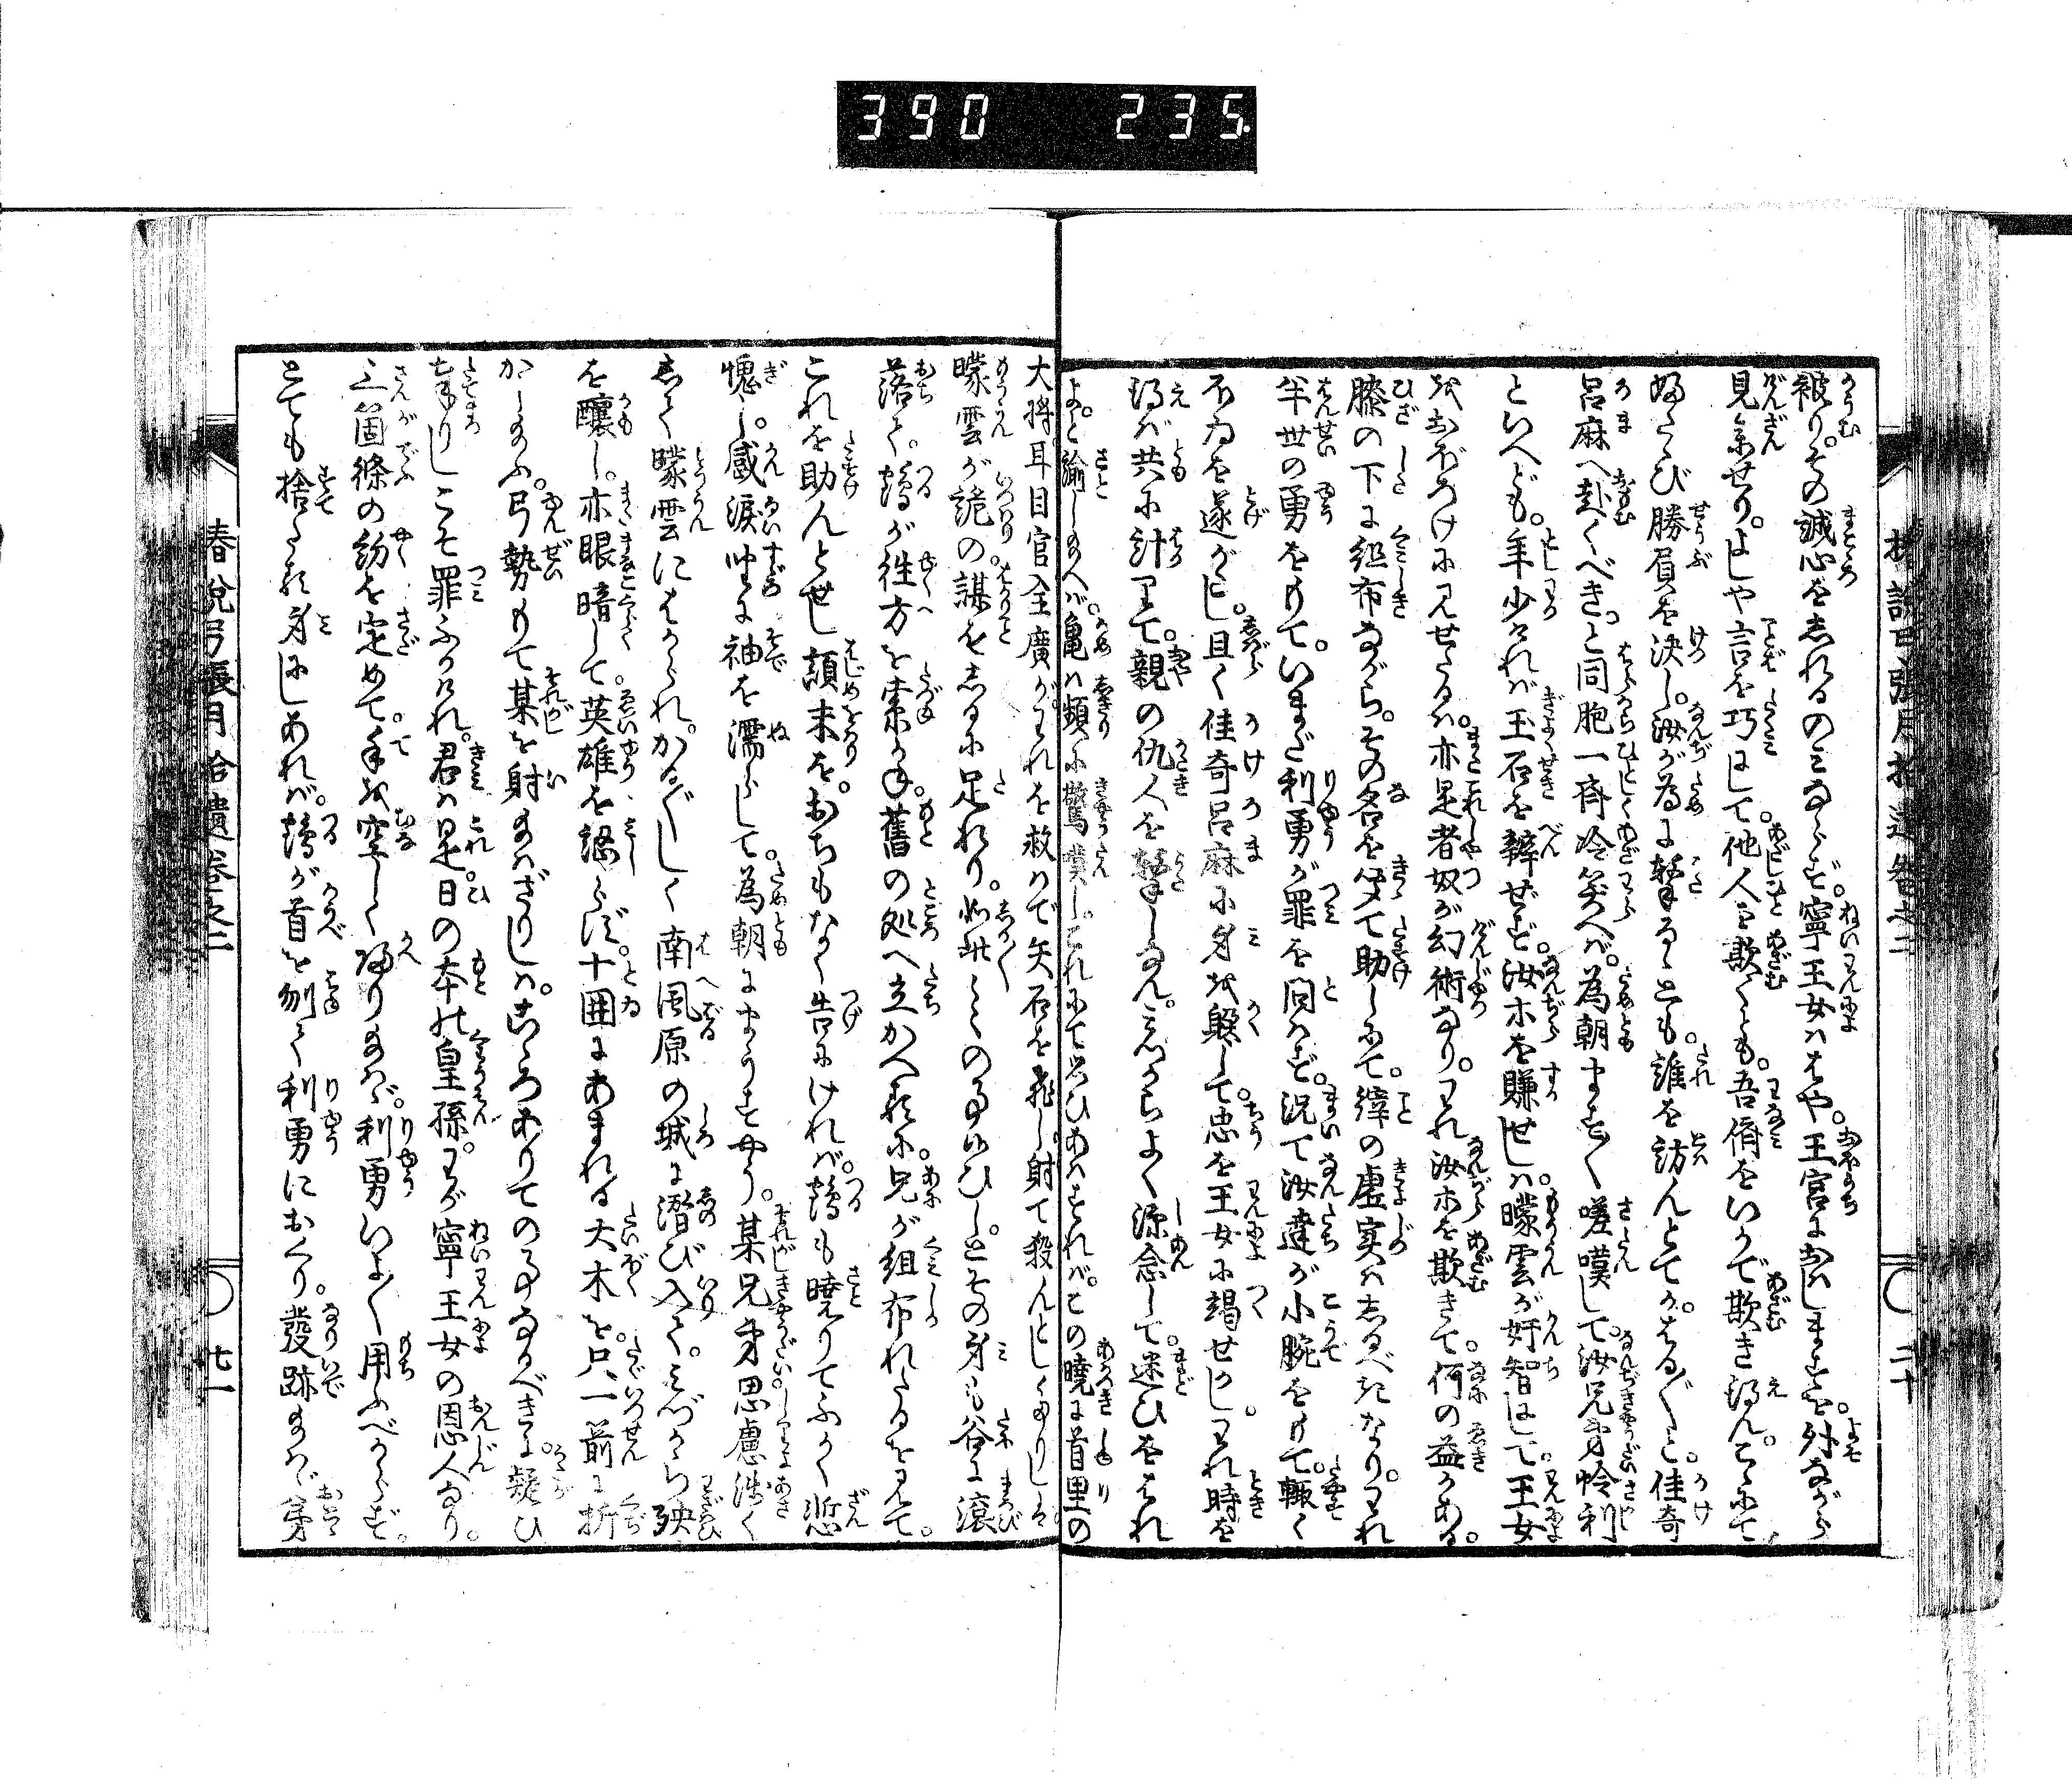 390 235
被り。その誠心をしれるのみならず。寧王女はや。王宮におはしますを。外ながら
見参せり。よしや言を巧にして。他人を欺くとも。吾儕をいかで欺き得ん。こゝにて
ふたゝび勝負を決し。汝が為に撃るゝとも。誰を訪んとてか。はる〴〵と。佳奇
呂麻へ赴くべき。と同胞一齊冷笑へば。為朝ます〳〵嗟嘆して。汝兄弟怜利
といへども。年少ければ玉石を辨ぜず。汝ホを賺せしは曚雲が奸智にして。王女
おぼろけに見せたるは。亦是者奴が幻術なり。われ汝ホを欺きて。何の益かある。
膝の下に組布ながら。その名を笑て助しにて。縡の虚実はしるべきなり。われ
半世の勇をもて。いまだ利勇が罪を問はず。况て汝達が小腕をもて。輙く
本為を遂がたし。且く佳奇呂麻に身を躱して。忠を王女に竭せかし。われ時を
得ば共に計りて。親の仇人を撃しなん。みづからよく深念して。迷ひをはれ
よ。と諭し給へば。亀は頻に驚嘆し。これにて思ひあはすれば。この曉に首里の
大將耳目官全廣が。われを救はで矢石を飛し。射て殺んとしたりしは。
曚雲が詭の謀をしるに足れり。如此々々の事いひし。とその身も谷に滾
落て。鶴が往方を索かね。舊の処へ立かへるに。兄が組布れたるを見て。
これを助んとせし顛末を。おちもなく告にければ。鶴も曉りてふかく慙
愧し。感涙坐に袖を濡らして。為朝にまうすやう。某兄弟思慮淺く
して曚雲にはかられ。かろ〴〵しく南風原の城に潜び入て。みづから殃
を釀し。亦眼暗して。英雄を認らず。十囲にあまれる大木を。只一箭に折
かし給ふ。弓勢もて某を射給はざりしは。こゝろありての事なるべきに。疑ひ
たてまつりしこそ罪ふかけれ。君は是日の本の皇孫。わが寧王女の恩人なり。
三箇條の約を定めて。手を空しく帰り給はゞ。利勇いよ〳〵用ふべからず。
とても捨たる身にしあれば。鶴が首を刎て利勇におくり。發跡給はゞ弟
春説弓張月拾遺巻之二
二十
廿一